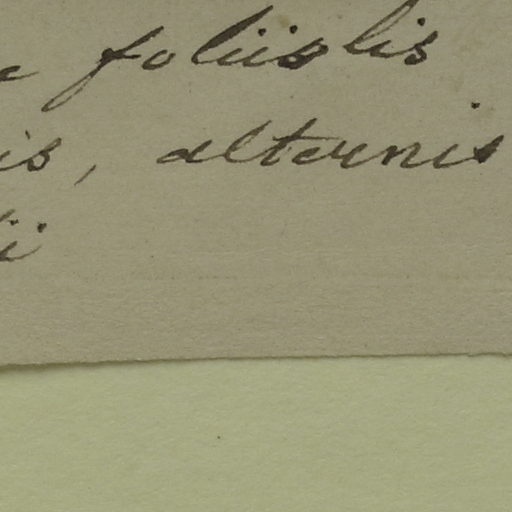 e foliislis
is, alternis
ii